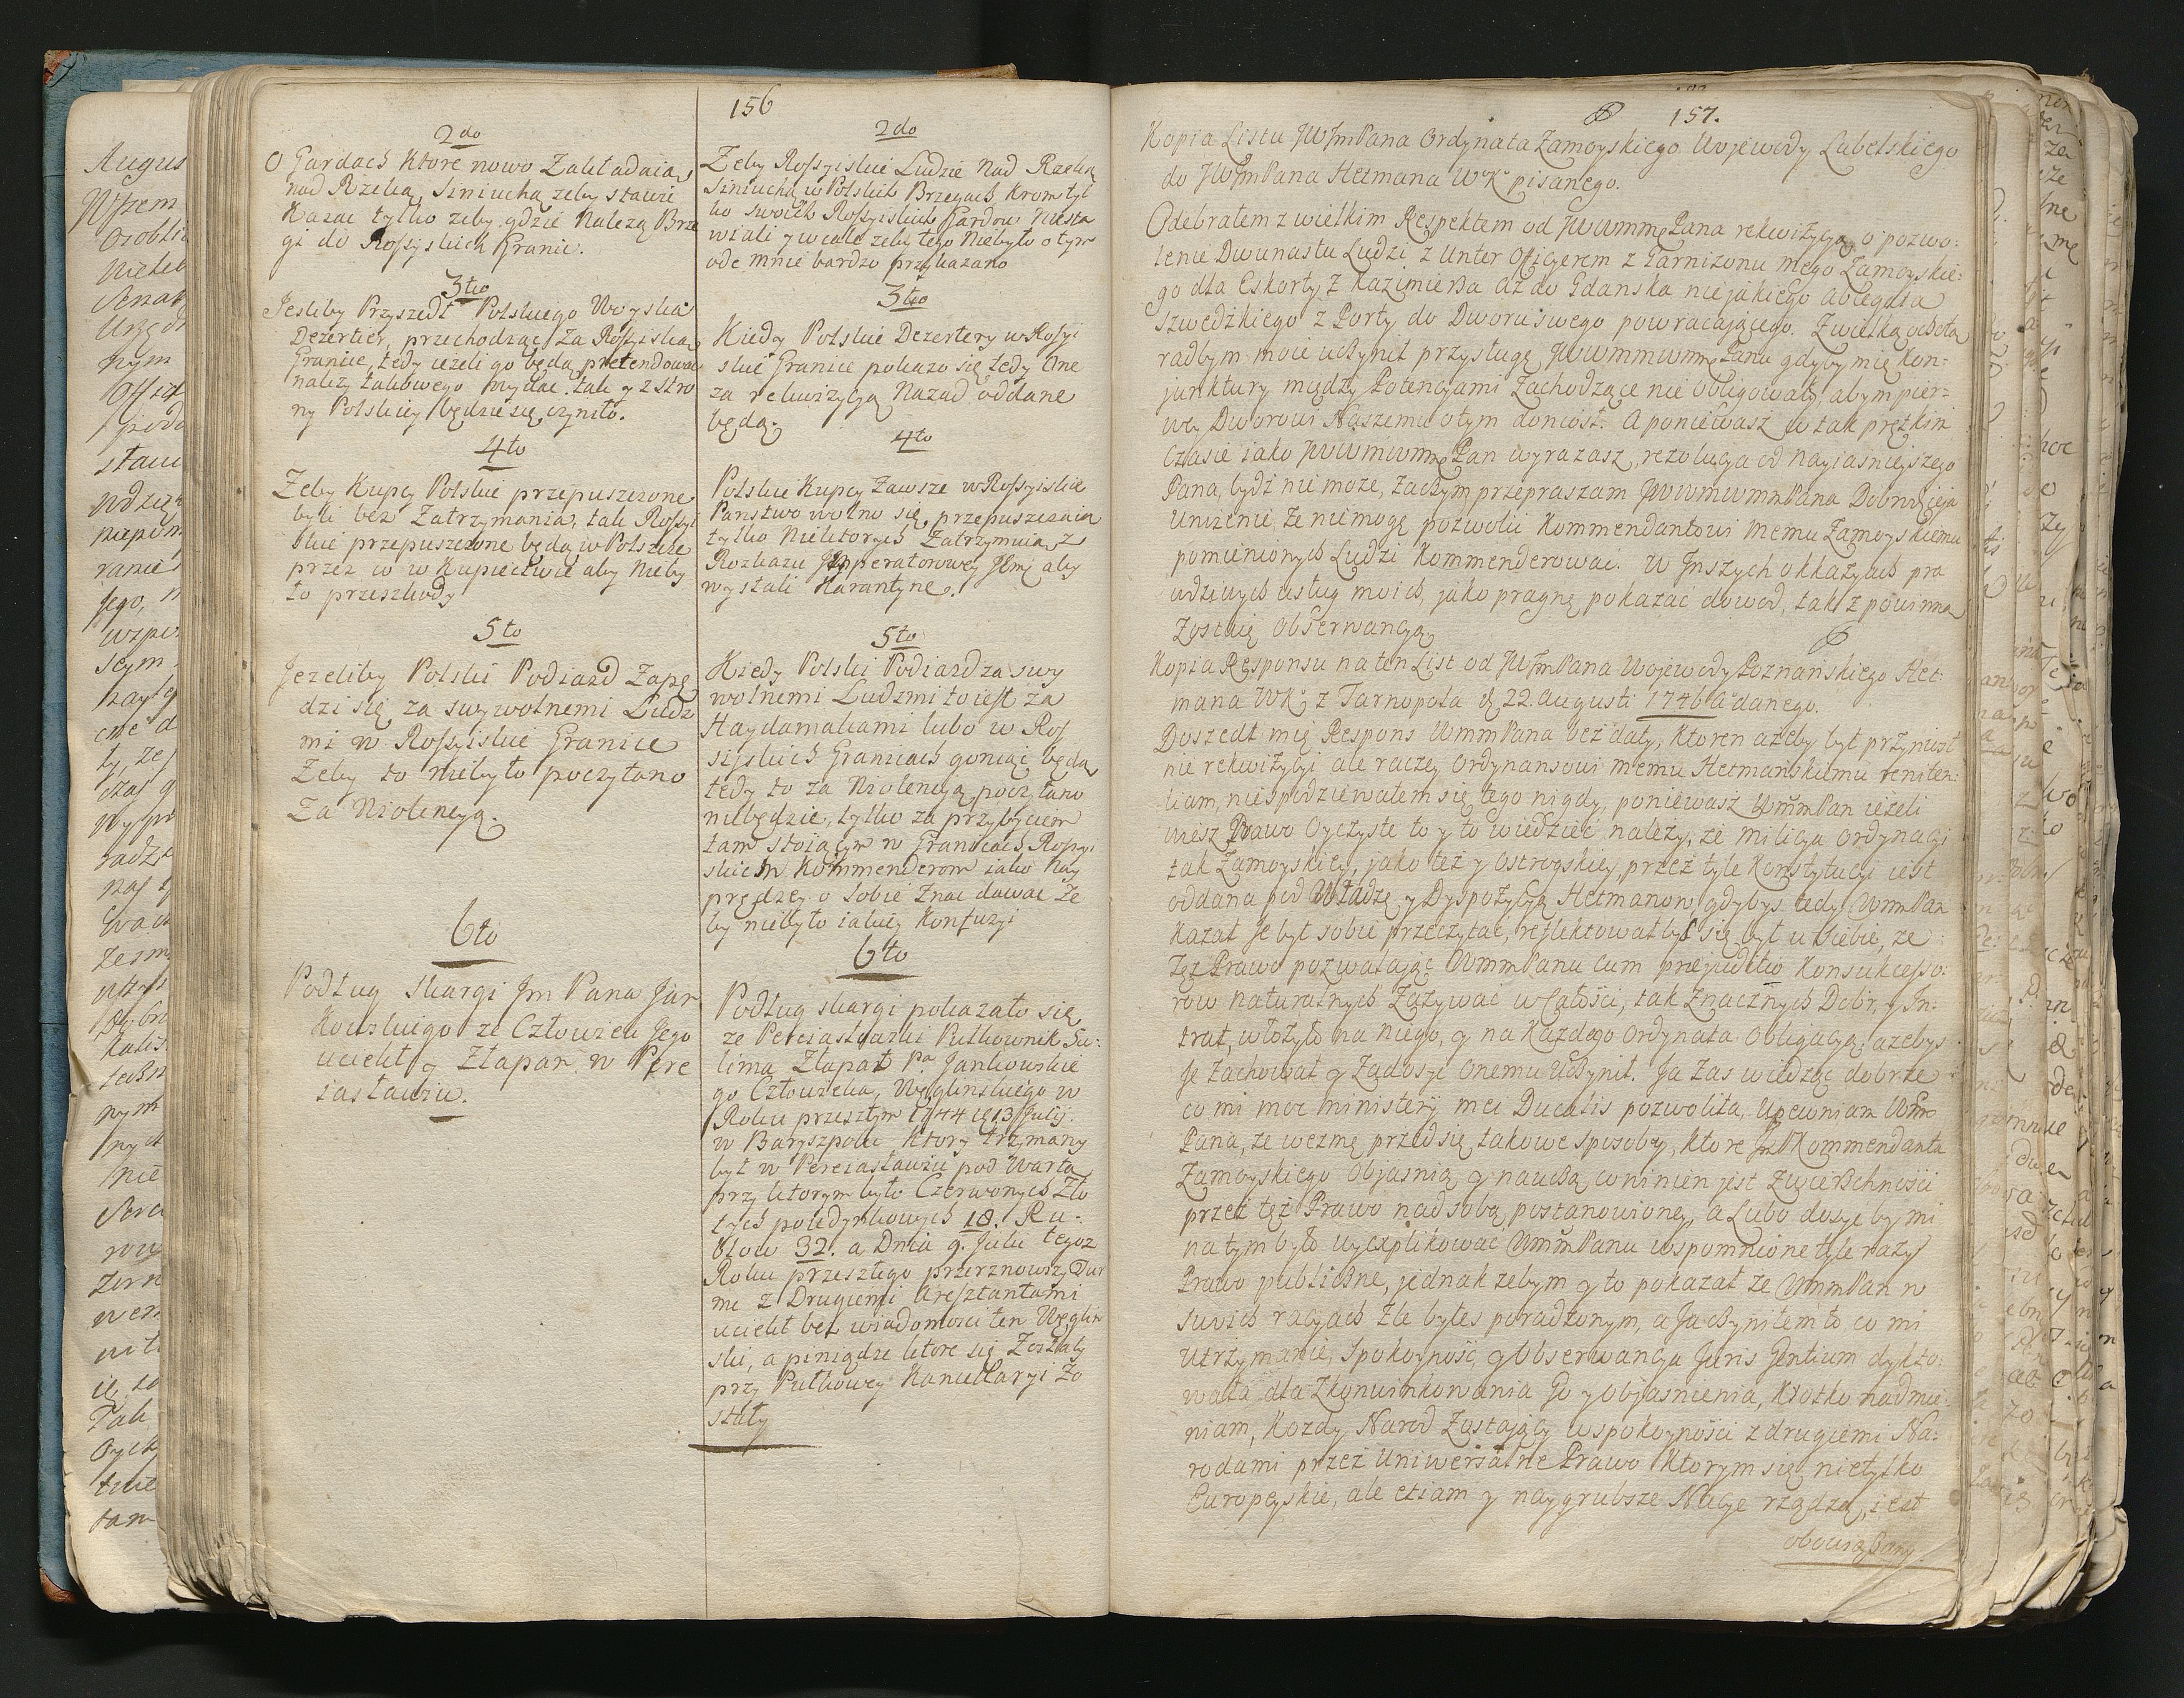 156
2do
O Gardach Ktore nowo Zakładaią
nad Rzeką Siniuchą zeby stawić
Kazac tylko zeby gdzie Nalezą Brze
gi do Rossyiskich Granic.
3tio
Jesliby Przyszedł Polskiego Woyska
Dezerter, przechodząc Za Rossyiską
Granice, tedy iezeli go będą pretendować
nalezy takowego wydac. tak y z Stro
ny Polskiey będzie się czyniło.
4to
Zeby Kupcy Polskie przepuszczone
byli bez Zatrzymania, tak Rossyi
skie przepuszczone będą w Polszcze
przez co w Kupiectwie aby nieby
ło przeszkody
5to
Jezeliby Polski Podiazd Zapę
dzi się za swywolnemi Ludz
mi w Rossyiskie Granice
Zeby to niebyło poczytano
Za Violencyą.
6to
Podług Skargi Jm Pana Jan
Kowskiego ze Człowiek Jego
uciekł y Złapan w Pere
iasławiu.
2do
Zeby Rossyiskie Ludzie Nad Rzeką
Siniuchą w Polskich Brzegach, Krom tyl
ko swoich Rossyiskich Gardow niesta
wiali y wcale zeby tego Niebyło o tym
ode mnie bardzo przykazano
3tio
Kiedy Polskie Dezertery w Rossyi
skie Granice pokazo się tedy One
za rekwizycyą Nazad oddane
będą.
4to
Polskie Kupcy Zawsze w Rossyiskie
Panstwo wolno się przepuszczaią
tylko Niektorych Zatrzymuią z
Rozkazu Jmperatorowey Jeymci aby
wystali Karantynę.
5to
Kiedy Polski Podiazd za swy
wolnemi Ludzmi to iest za
Haydamakami lubo w Ros
syiskich Granicach goniąc będą
tedy to za Violencyą poczytano
niebędzie, tylko za przybyciem
tam stoiącym w Granicach Rossyi
skich Kommenderom iako Nay
prędzey o Sobie Znac dawac Ze
by niebyło iakiey Konfuzyi
6to
Podług skargi pokazało się
ze Pereiasławski Pułkownik Su:
lima Złapał Pa Jankowskie
go Człowieka, Węglinskiego w
Roku przeszłym 1744 13 Julij.
w Baryszpolu Ktory trzymany
był w Pereiasławiu pod Wartą
przy ktorym było Czerwonych Zło
tych poiedynkowych 18. Ru-
blow 32. a Dnia 9. Julii tegoz
Roku przeszłego przerznowszy Tur
mę z Drugiemi Aresztantami
uciekł bez wiadomosci ten Węglin
ski, a piniądze ktore się Zostały
przy Pułkowey Kancellaryi Zo
stały
157.
Kopia Listu JWJmPana Ordynata Zamoyskiego Wojewody Lubelskiego
do JWJmPana Hetmana WK pisanego.
Odebrałem z wielkim Respektem od JWWmmPana rekwizycyą o pozwo:
lenie Dwunastu Ludzi z Unter Officyerem z Garnizonu mego Zamoyskie:
go dla Eskorty z Kazimierza az do Gdanska niejakiego Ablegata
Szwedzkiego z Porty do Dworu swego powracaiącego. Z wielką ochotą
radbym moie uczynił przysługę JWWmmPanu gdyby mię Kon:
junktury między Potencyami Zachodzące nie obligowały, abym pier=
wey Dworowi Naszemu o tym doniosł. A poniewasz w tak prętkim
czasie iako JWWmmPan wyrazasz, rezolucya od Nayiasnieyszego
Pana, bydź nie moze, Zaczym przepraszam JWWmmPana Dobrodzieja
Unizenie Ze niemogę pozwolic Kommendantowi memu Zamoyskiemu
pomienionych Ludzi Kommenderowac. W Jnszych okkazyach pra
wdziwych usług moich, jako pragnę pokazać dowod, tak z powinną
Zostaię Obserwancyą
Kopia Responsu na ten List od JWJmPana Wojewody Poznańskiego Het:
mana WK z Tarnopola d 22. Augusti 1746 Ao danego.
Doszedł mię Respons WmmPana bez daty, Ktoren azeby był przyniosł
nie rekwizycyi ale raczey Ordynansowi memu Hetmańskiemu reniten:
tiam, niespodziewałem się tego nigdy, poniewasz WmmPan iezeli
wiesz Prawo Oyczyste to y to wiedzieć należy, że milicya Ordynacyi
tak Zamoyskiey, jako też y Ostrogskiey, przez tyle Konstytucyi iest
oddana pod Władzę y Dyspozycyą Hetmanow, gdybys tedy WmmPan
Kazał Je był sobie przeczytac, reflektowałbyś się był u siebie, ze
Też Prawo pozwalając WmmPanu cum praejuditio Konsukcesso:
row naturalnych Zażywać w całości, tak znacznych Dobr, y In:
trat, włożyło na niego, y na Kazdego Ordynata Obligacyą, azebys
Je Zachował y Zadosyc onemu Uczynił. Ja Zas wiedząc dobrze
co mi moc ministerij mei Ducalis pozwoliła, Upewniam Wmm
Pana, ze wezmę przed się takowe sposoby, Ktore JmP Kommendanta
Zamoyskiego Objasnią y nauczą co winien jest Zwierzchności
przez też Prawo nad sobą postanowioney, a Lubo dosyc by mi
na tym było wyexplikować WmmPanu wspomnione tyle razy
Prawo publiczne, jednak zebym y to pokazał ze WmmPan w
swoich racyach zle byłes poradzonym, a Ja czyniłem to, co mi
Utrzymanie, Spokoyność y Obserwancya Juris Gentium dykto:
wała dla Zkonwinkowania Go y Objasnienia, Krotko nadmie:
niam, Kozdy Narod Zostający w spokoyności z drugiemi Na:
rodami przez Uniwersalne Prawo Ktorym się nietylko
Europeyskie, ale etiam y naygrubsze Nacye rządzą, iest
obowiązany.